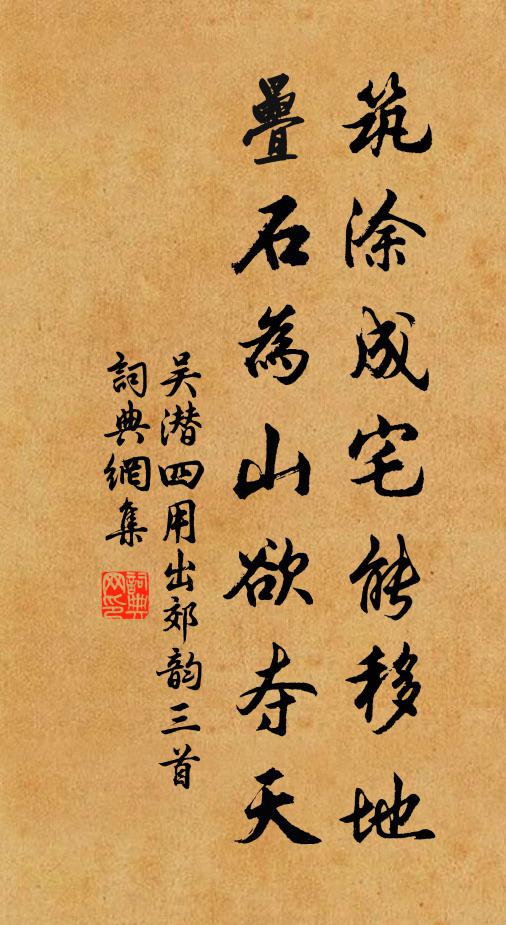 筑涂成宅能移地
疊石為山欲夺天
吴潜四用出郊韵三首
詞典網集
詞典网印